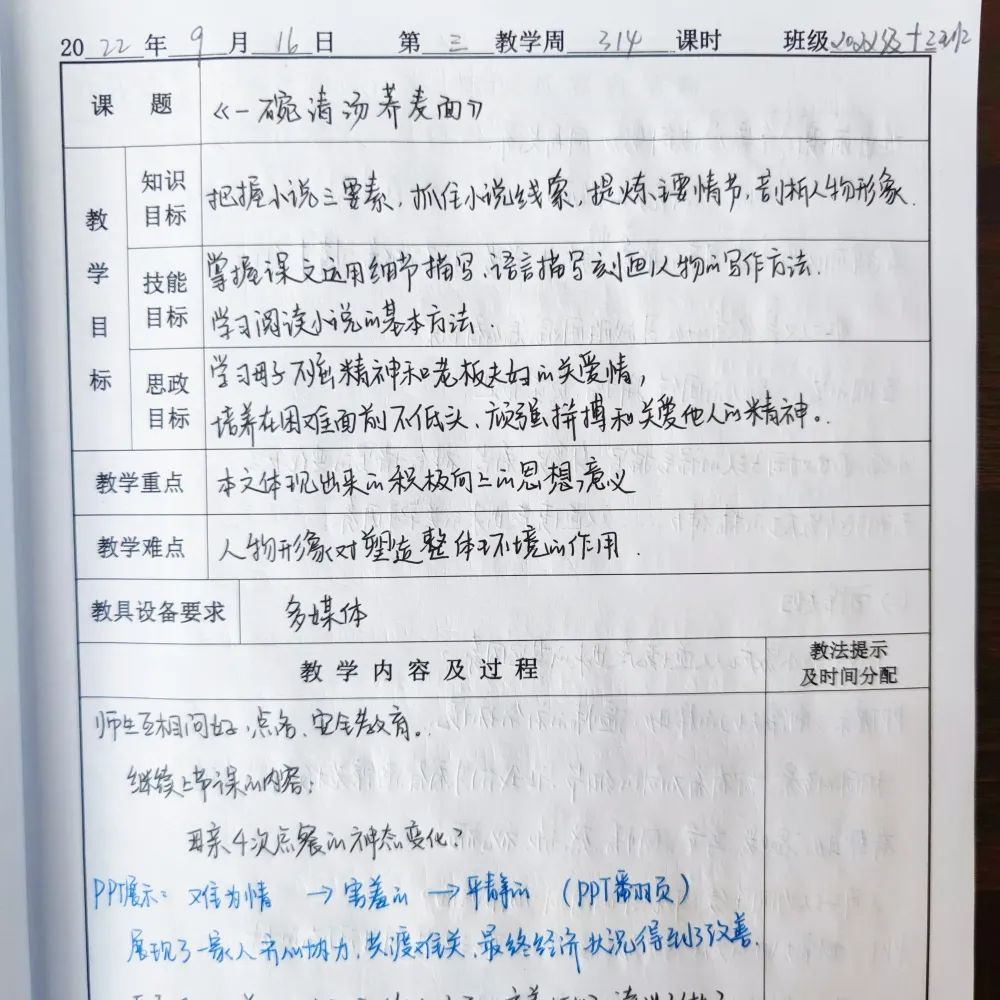 2022年9月16日 第三教学周 314课时 班级2022级十
课题 《一碗清汤荞麦面》
教学目标
知识目标 把握小说三要素,抓住小说线索,提炼主要情节,剖析人物形象.
技能目标 掌握课文运用细节描写、语言描写刻画人物的写作方法.
学习阅读小说的基本方法.
思政目标 学习母子不屈精神和老板夫妇的关爱情,
培养在困难面前不低头、顽强拼搏和关爱他人的精神。
教学重点 本文体现出来的积极向上的思想意义
教学难点 人物形象对塑造整体环境的作用.
教具设备要求 多媒体
教学内容及过程 教法提示及时间分配
师生互相问好,点名、安全教育。
继续上节课的内容:
母亲4次点餐的神态变化?
PPT展示: 难为情 → 害羞的 → 平静的 (PPT翻页)
展现了一家人齐心协力,共渡难关,最终经济状况得到了改善.